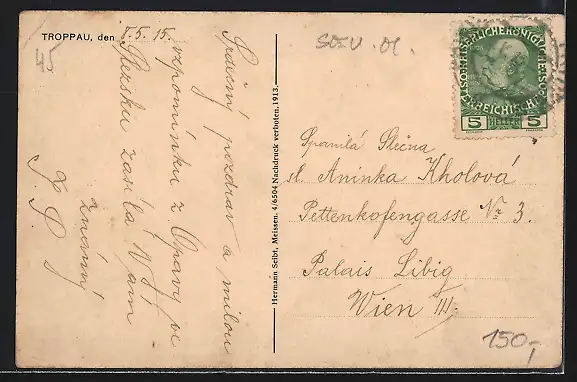 TROPPAU, den 8.5.15.
45
Srdečný pozdrav a milou
vzpomínku z Opavy ve
Slezsku zasílá Vám
známý
J S
Hermann Seibt, Meissen. 4/6504 Nachdruck verboten. 1913.
SOIV.01.
KAISERLICHE KÖNIGLICHE
ÖSTERREICHISCHE
5 HELLER 5
Spanilá Slečna
sl. Aninka Kholová
Pettenkofengasse Nr 3.
Palais Libig
Wien III.
150,-